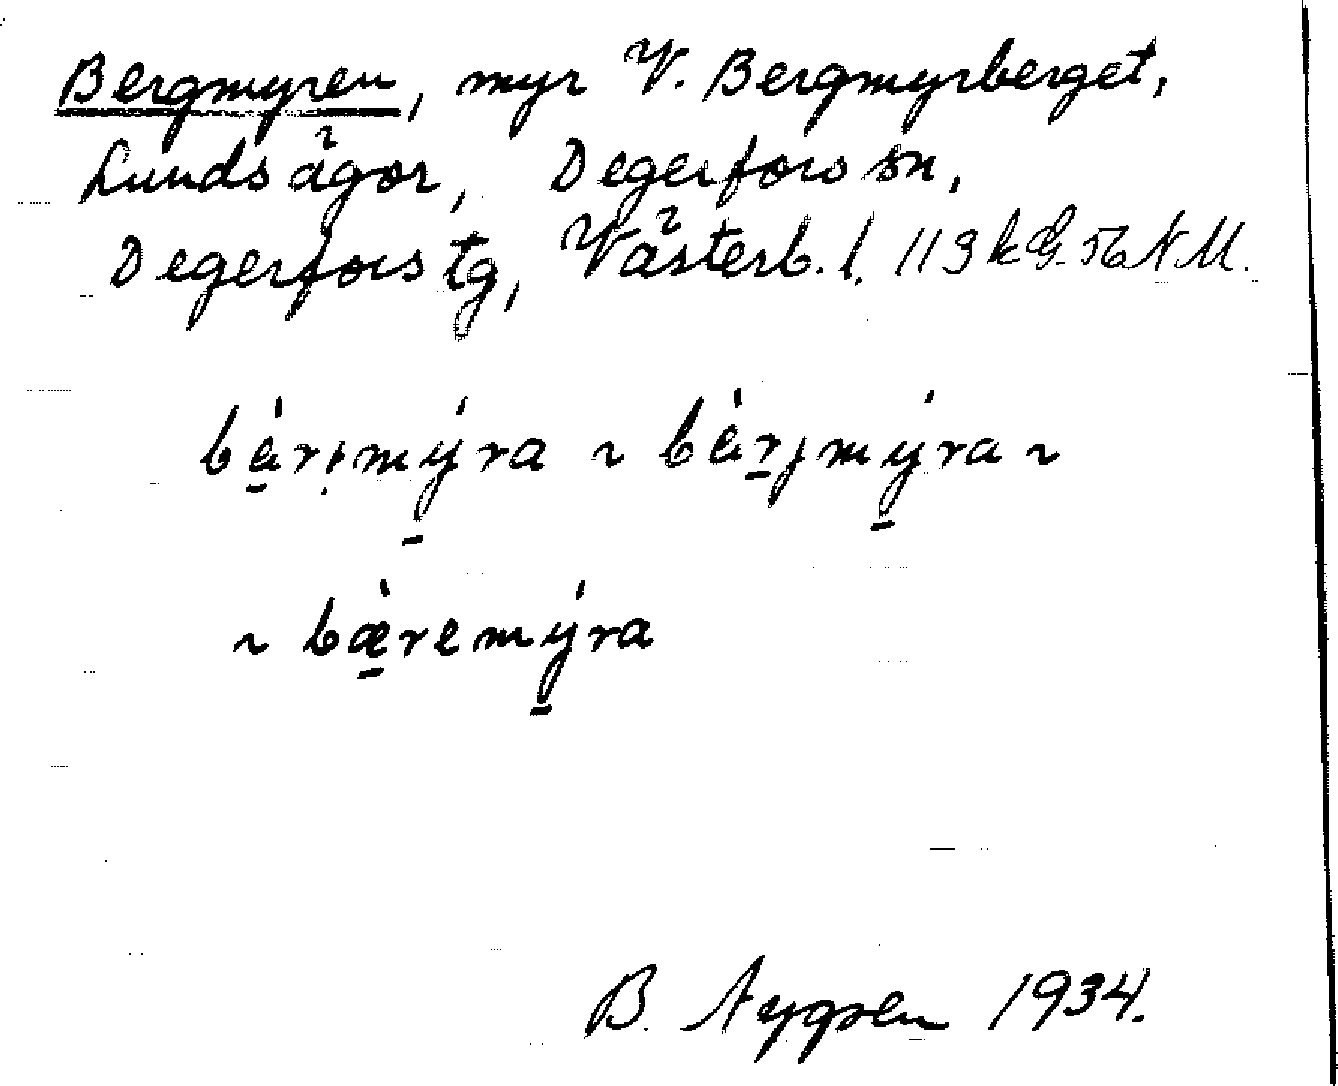 Bergmyren, myr V. Bergmyrberget,
Lunds ägor, Degerfors sn,
Degerfors tg, Västerb. l. 113 k G. 56 N M.
bæ̀rjmýra ~ bæ̀rjmýra ~
~ bæ̀remýra
B. Nygren 1934.